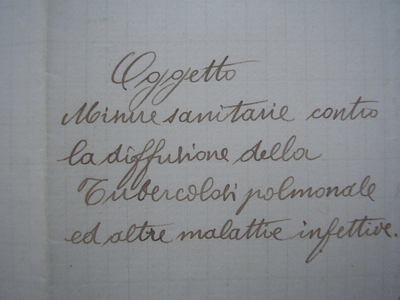 Oggetto
Misure sanitarie contro
la diffusione della
Tubercolosi polmonale
ed altre malattie infettive.